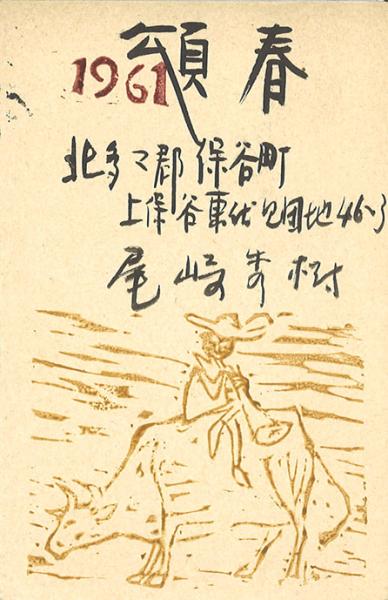 頌春
1961
北多マ郡保谷町
上保谷東伏見団地46-3
尾崎秀樹